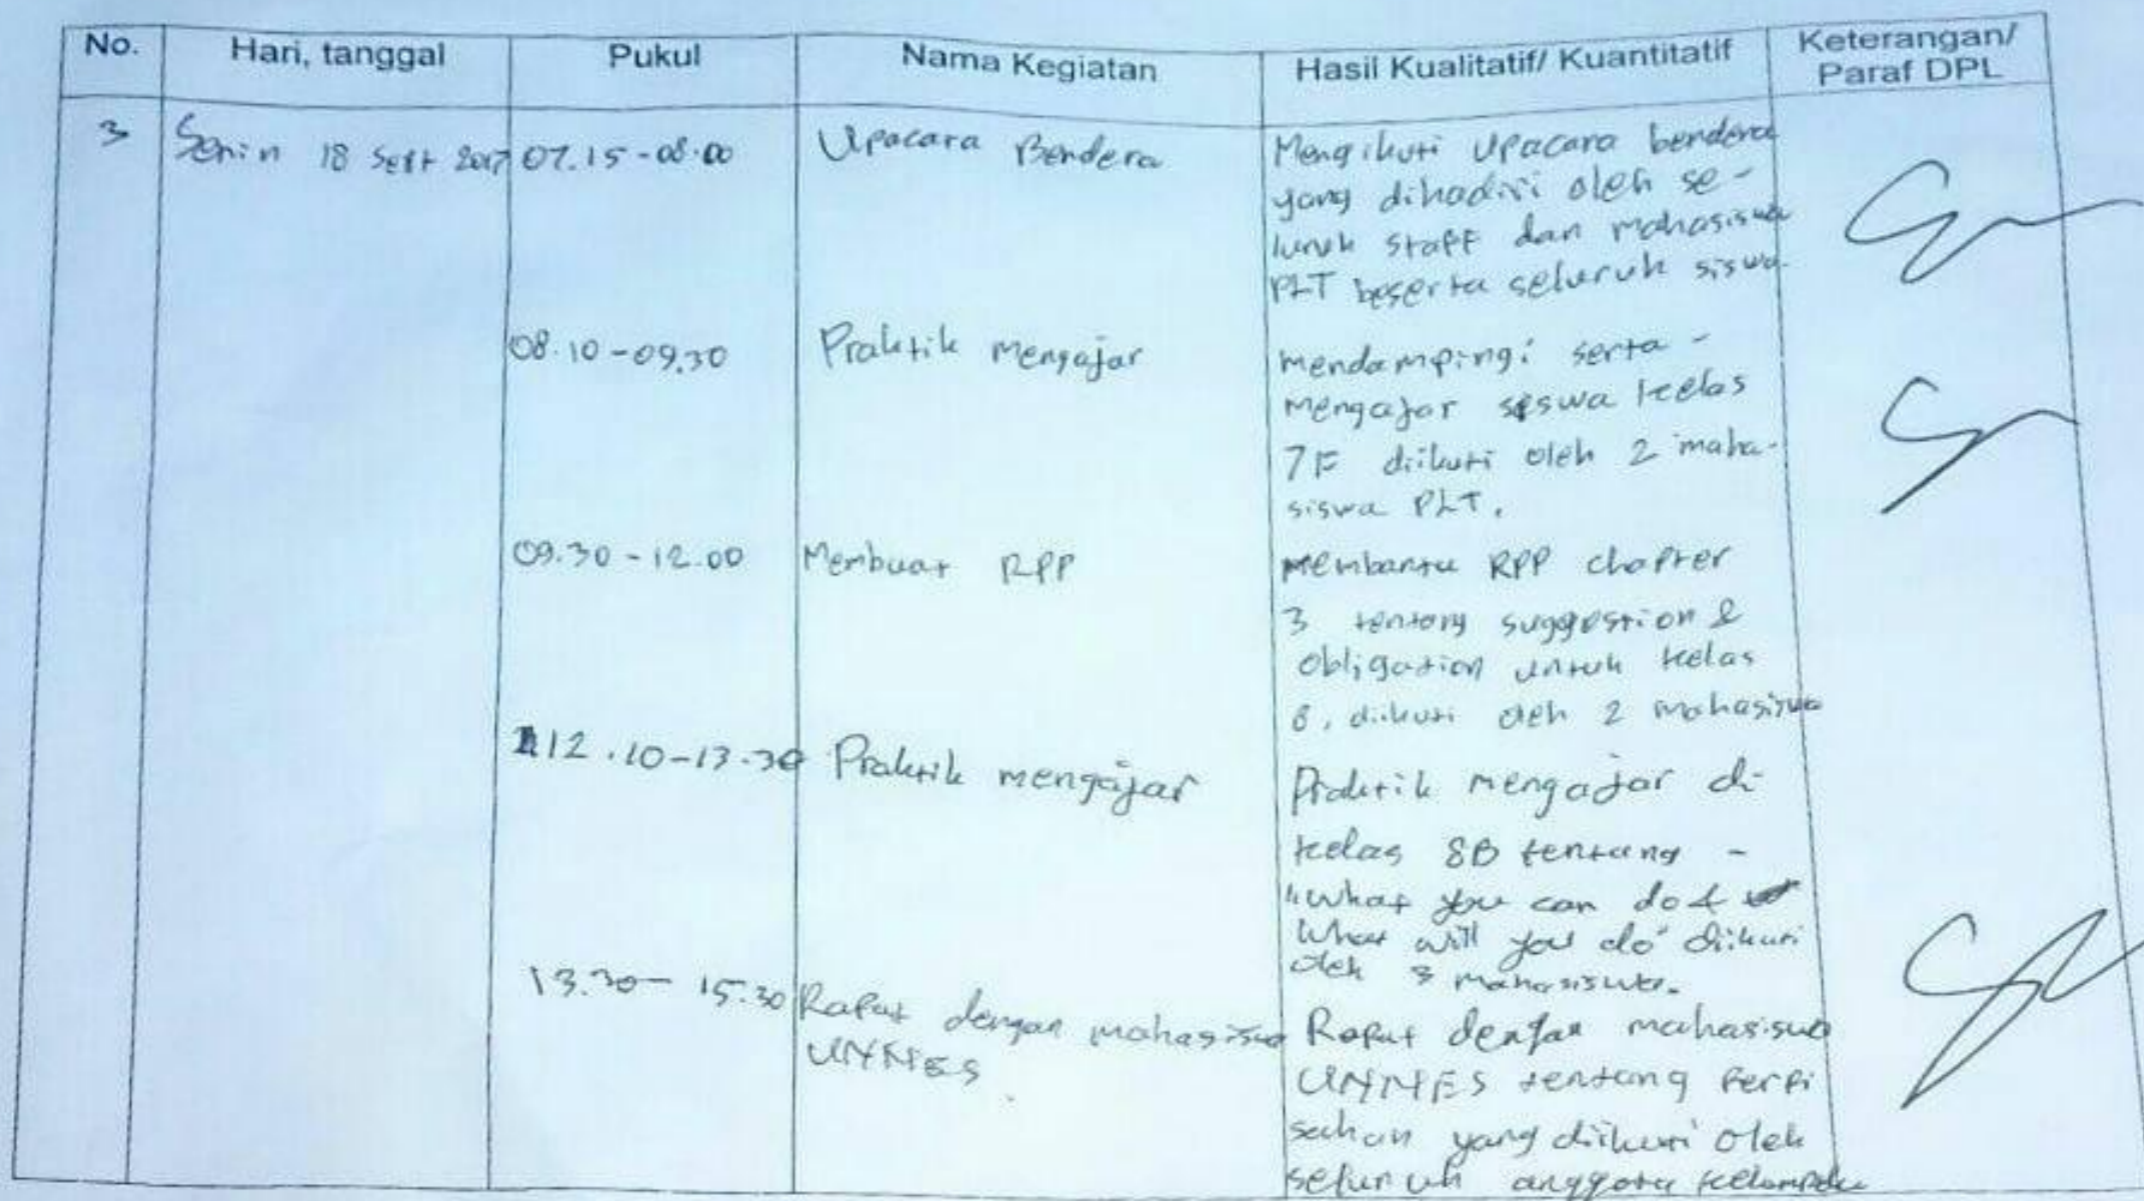 No. Hari, tanggal Pukul Nama Kegiatan Hasil Kualitatif/ Kuantitatif Keterangan/
Paraf DPL
3 Senin 18 Sept 2017 07.15-08.00 Upacara Bendera Mengikuti upacara bendera
yang dihadiri oleh se-
luruh staff dan mahasiswa
PLT beserta seluruh siswa.
08.10-09.30 Praktik mengajar mendampingi serta -
mengajar siswa kelas
7F diikuti oleh 2 maha-
siswa PLT.
09.30-12.00 Membuat RPP membantu RPP chapter
3 tentang suggestion &
obligation untuk kelas
8, diikuti oleh 2 mahasiswa
12.10-13.30 Praktik mengajar Praktik mengajar di
kelas 8B tentang -
"What you can do &
What will you do" diikuti
oleh 3 mahasiswa.
13.30- 15.30 Rapat dengan mahasiswa Rapat dengan mahasiswa
UNNES UNNES tentang perpi
sahan yang diikuti oleh
seluruh anggota kelompok